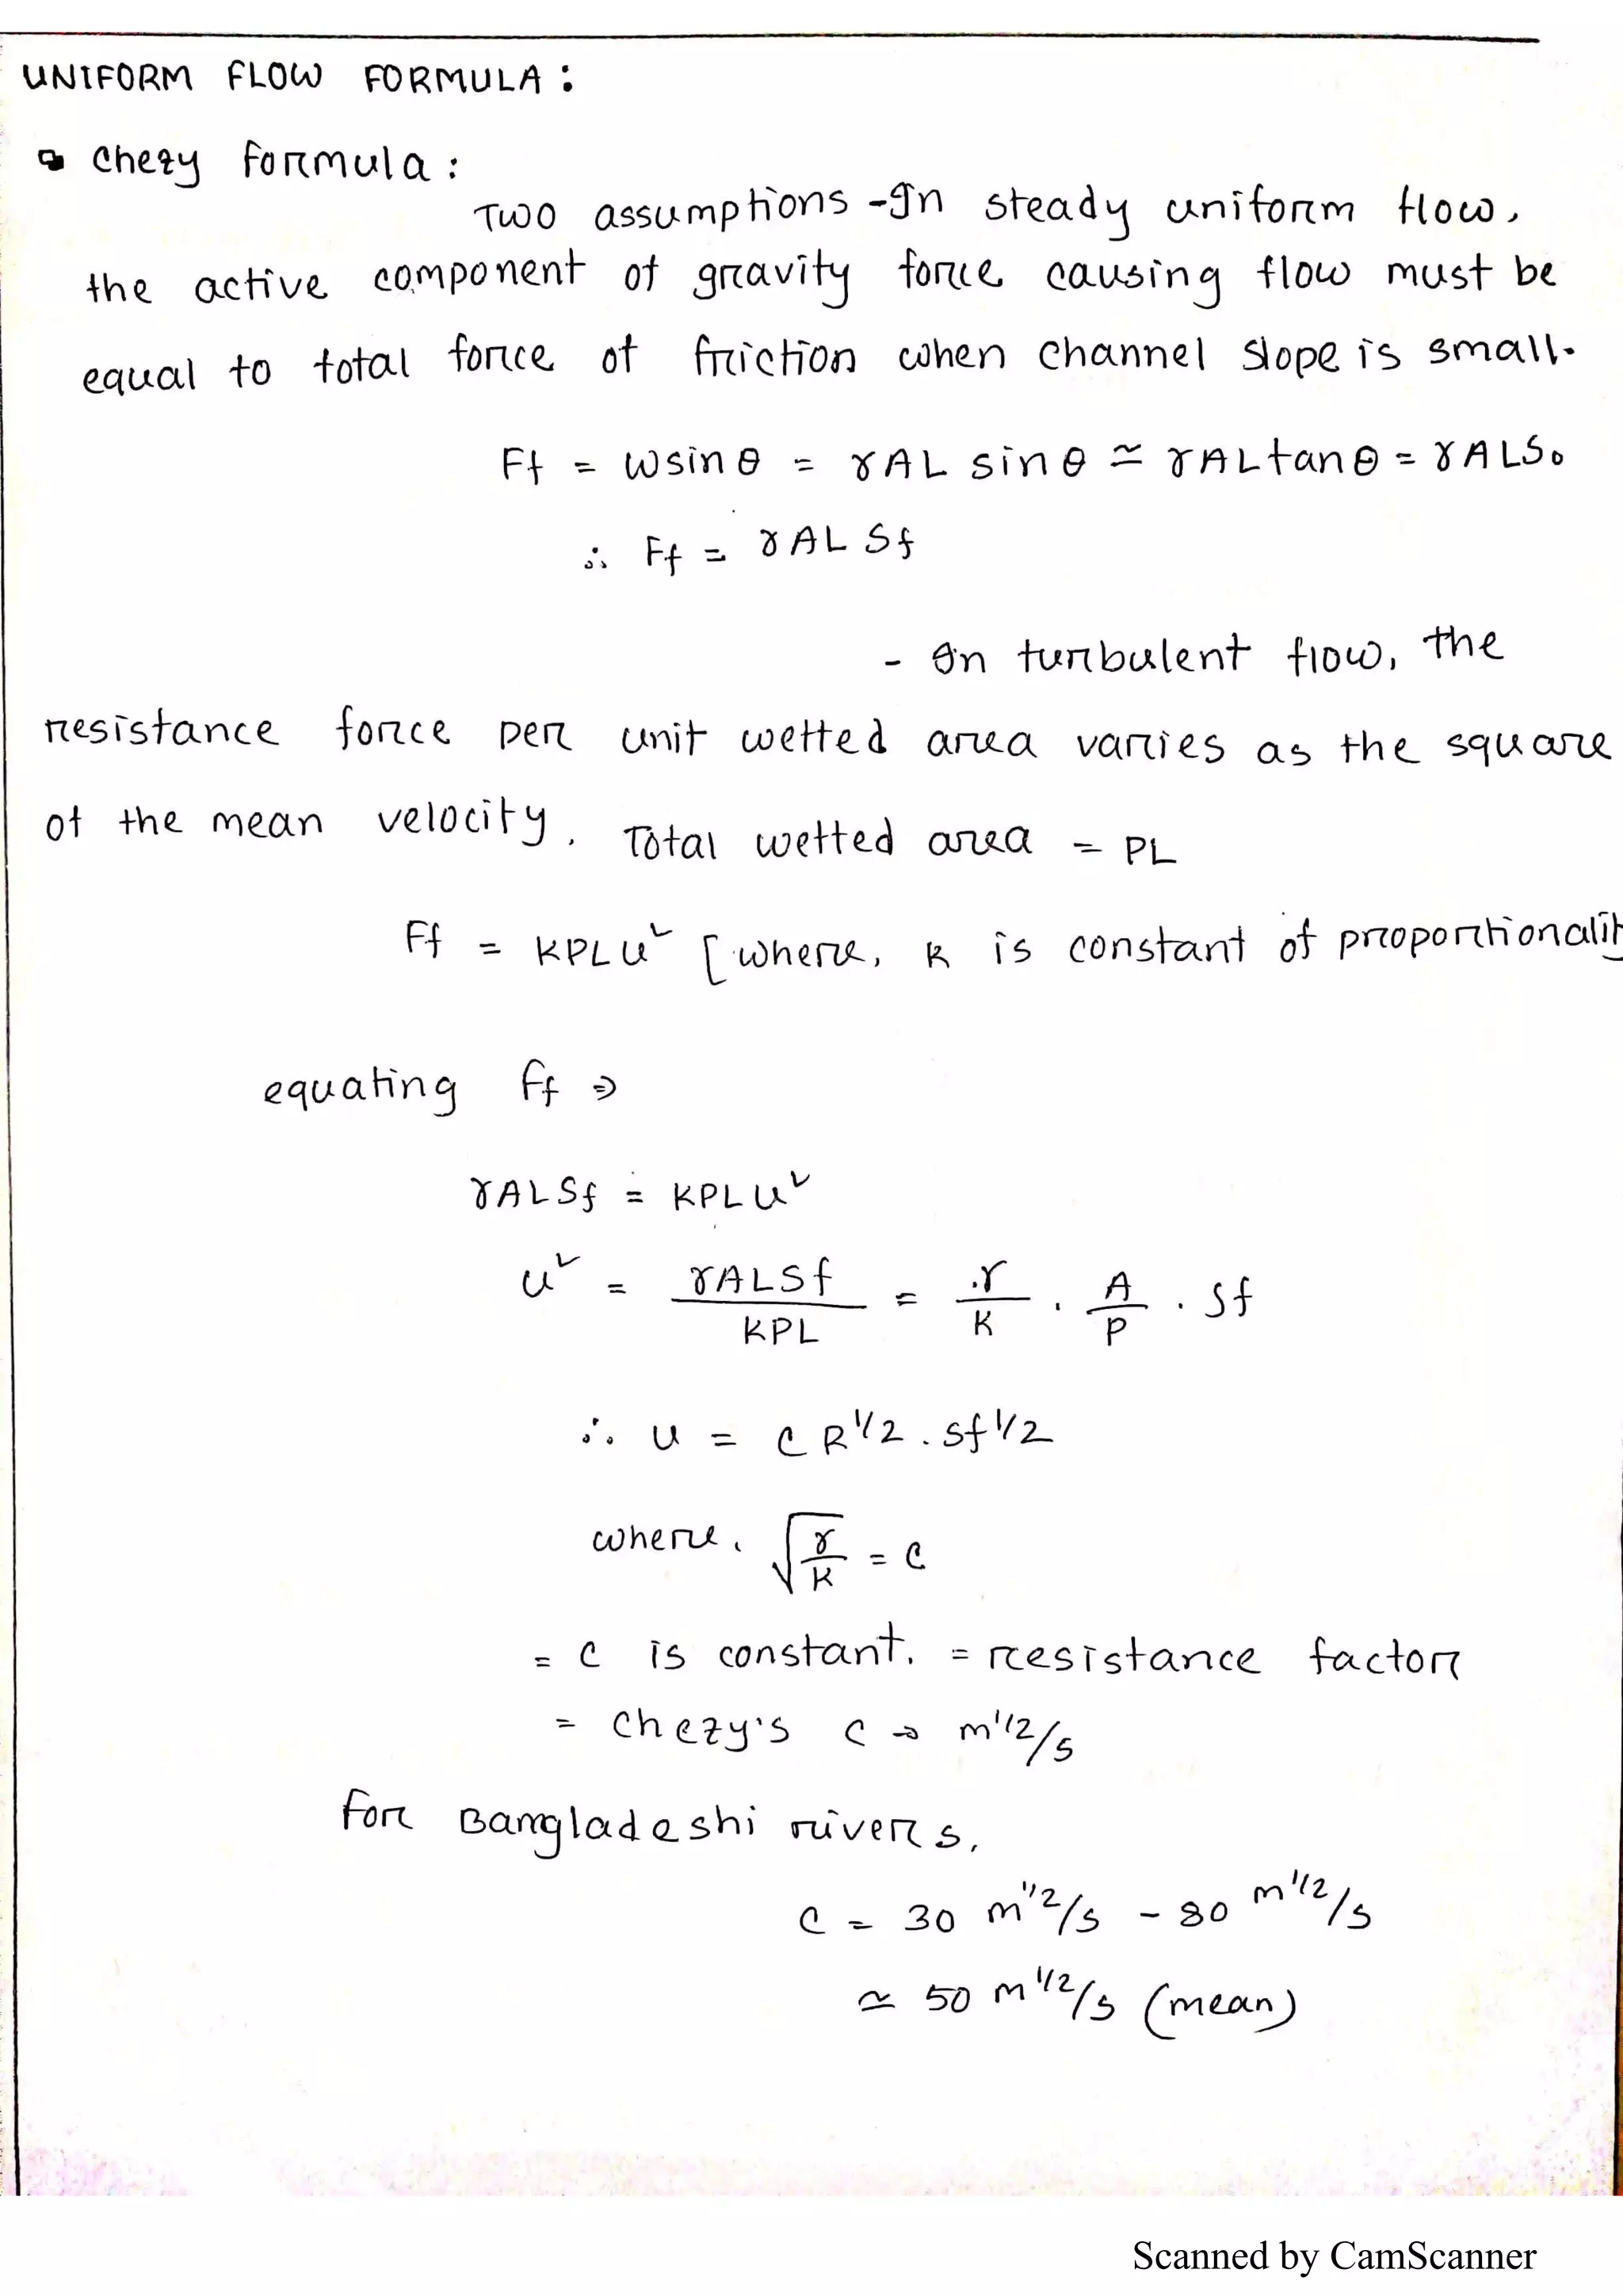 UNIFORM FLOW FORMULA:
Chezy formula:
Two assumptions - In steady uniform flow,
the active component of gravity force causing flow must be
equal to total force of friction when channel slope is small.
Ff = W sin θ = γAL sin θ ≃ γAL tan θ = γALS₀
∴ Ff = γAL Sf
- In turbulent flow, the
resistance force per unit wetted area varies as the square
of the mean velocity. Total wetted area = PL
Ff = KPLU² [where, K is constant of proportionalit
equating Ff ⇒
γALSf = KPLU²
U² = γALSf / KPL = γ/K . A/P . Sf
∴ U = C R^1/2 . Sf^1/2
where, √(γ/K) = C
= C is constant. = resistance factor
= Chezy's C → m^1/2/s
For Bangladeshi rivers,
C = 30 m^1/2/s - 80 m^1/2/s
≃ 50 m^1/2/s (mean)
Scanned by CamScanner